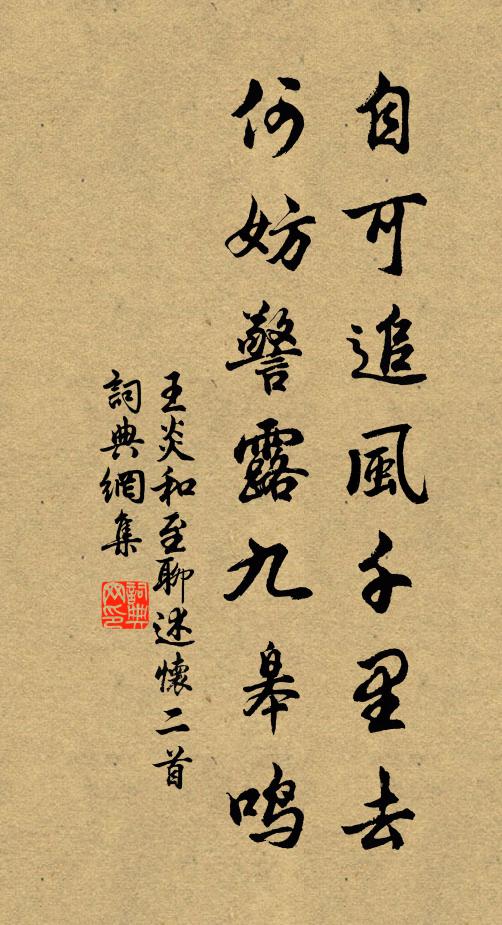 自可追風千里去
何妨警露九皋鳴
王炎和至聊述懷二首
詞典網集
詞典
网印